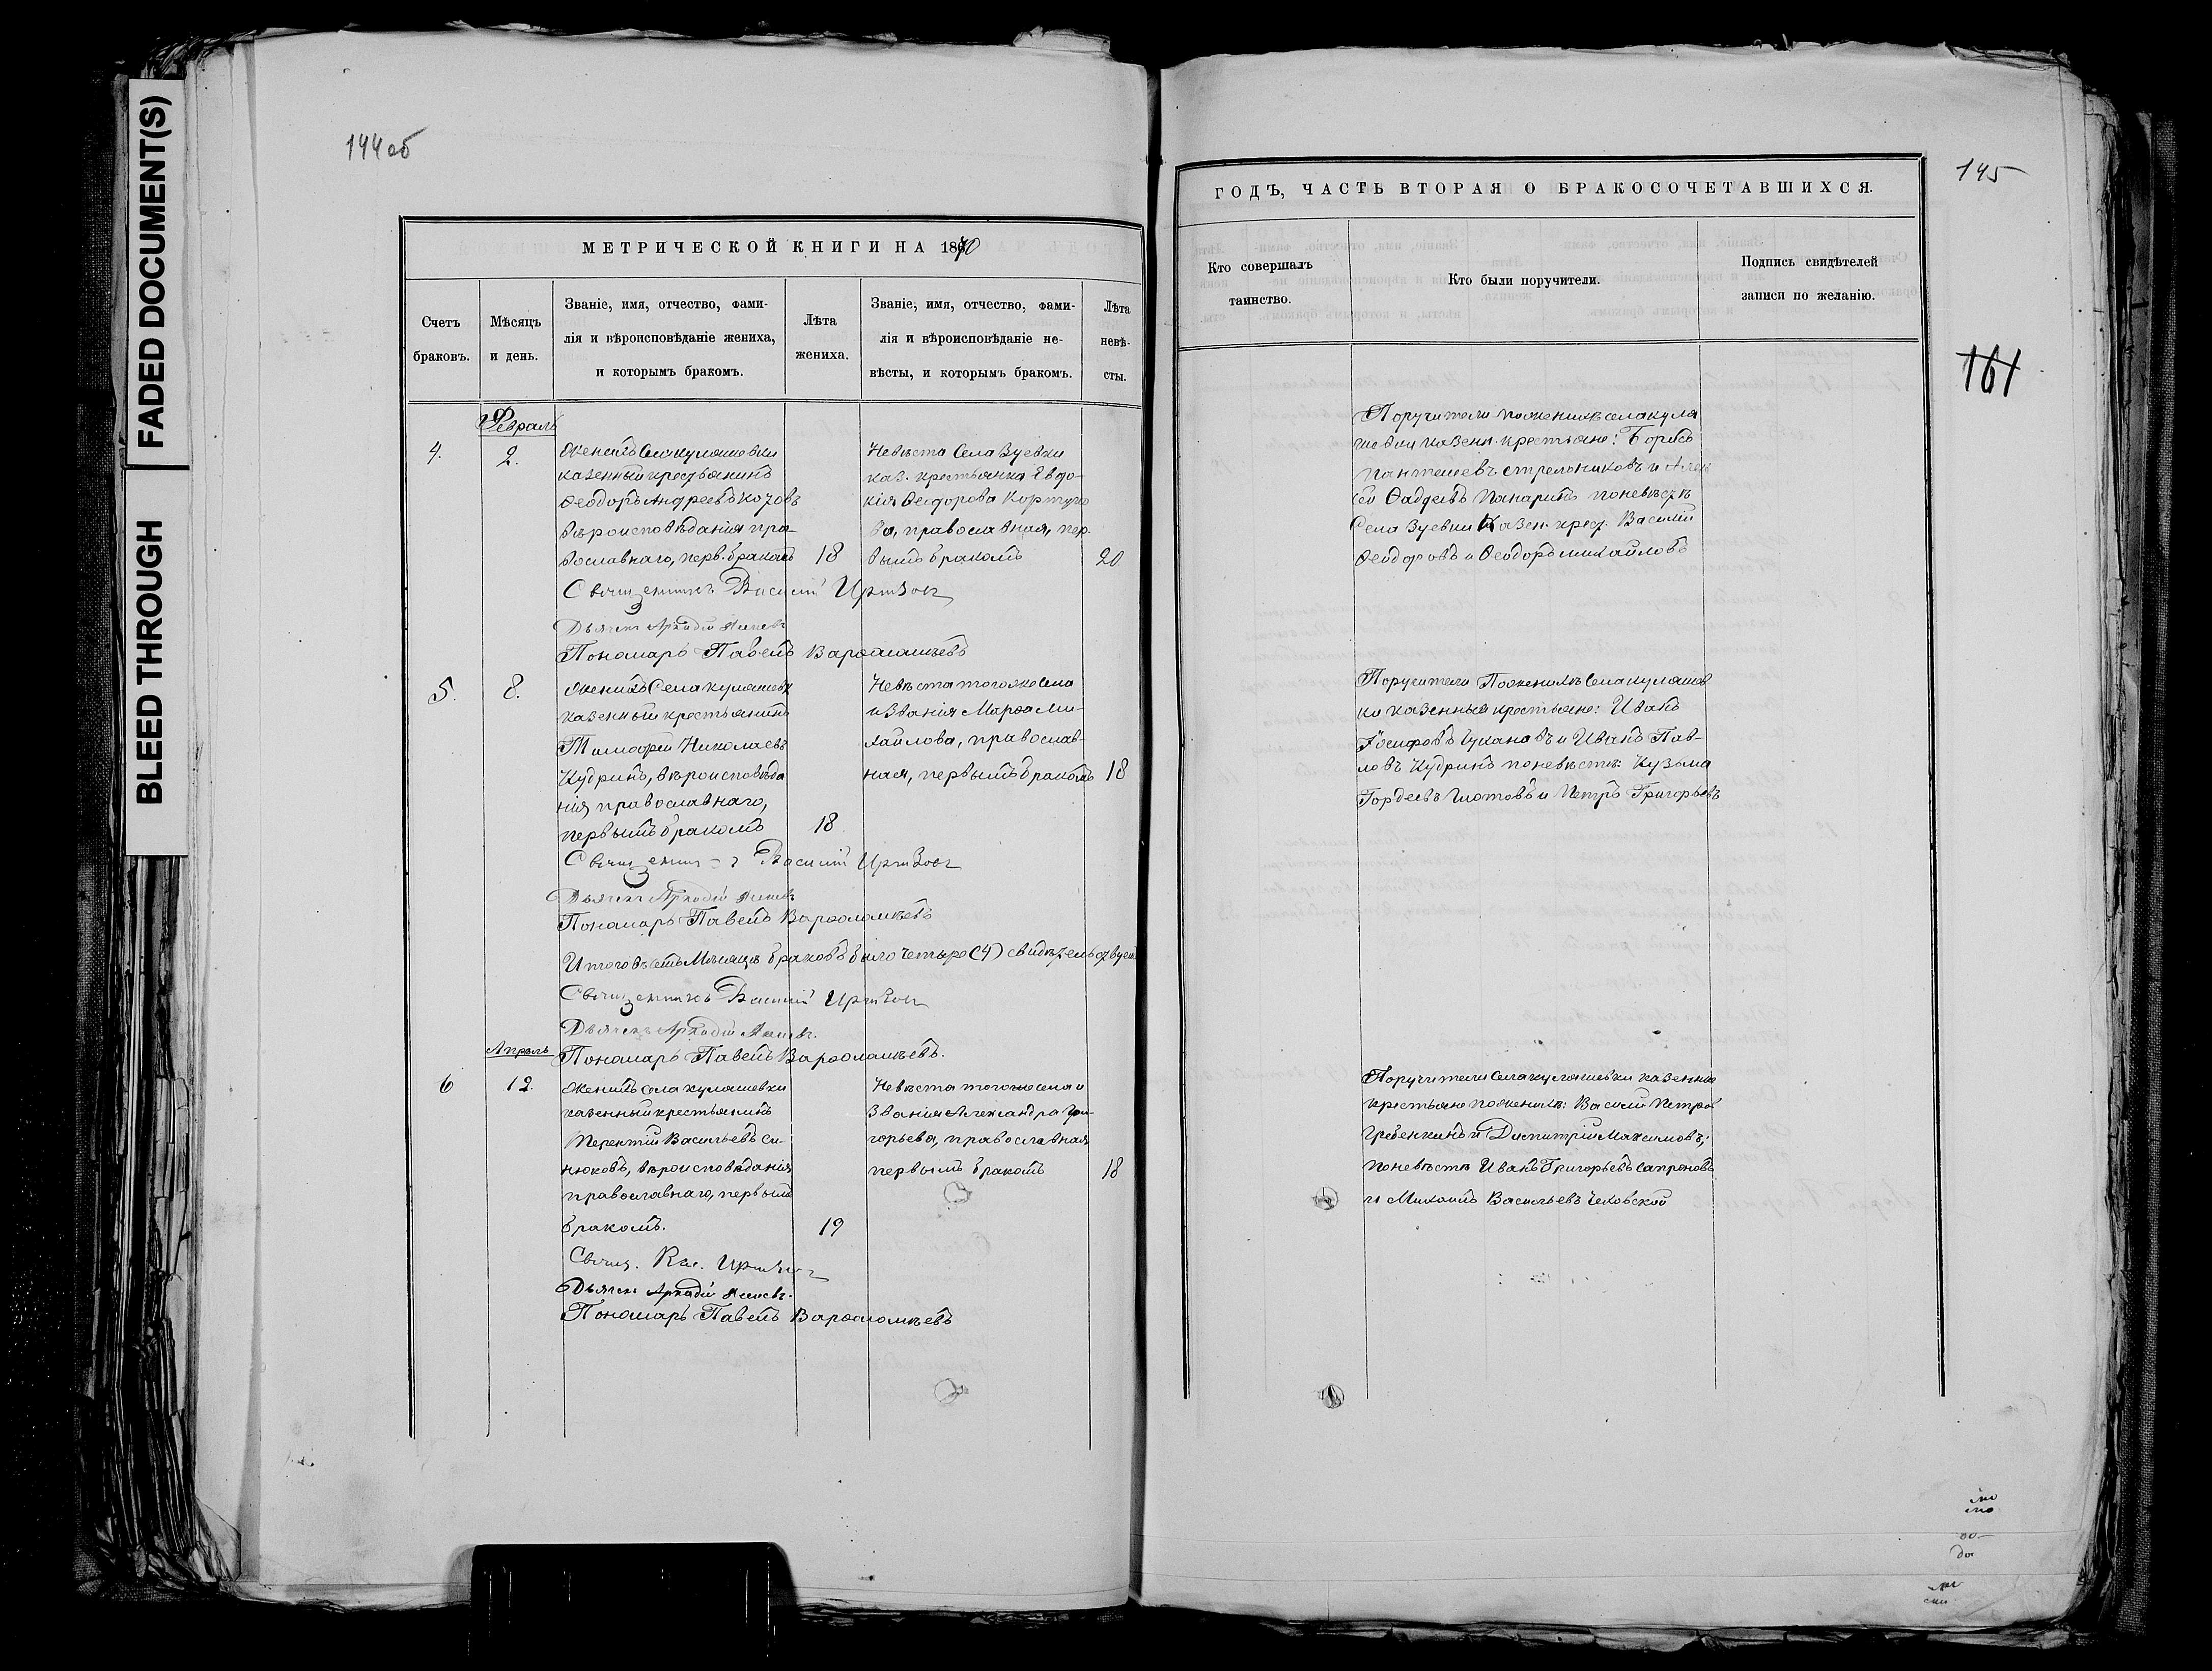 FADED DOCUMENT(S)
BLEED THROUGH
144 об
МЕТРИЧЕСКОЙ КНИГИ НА 1870
Счетъ браковъ.
Мѣсяцъ и день.
Званіе, имя, отчество, фами-
лія и вѣроисповѣданіе жениха,
и которымъ бракомъ.
Лѣта жениха.
Званіе, имя, отчество, фами-
лія и вѣроисповѣданіе не-
вѣсты, и которымъ бракомъ.
Лѣта невѣ-
сты.
Февраль
4.
2.
Женихъ Села кулашевки
казенный крестьянинъ
Ѳеодоръ Андреевъ Козовъ
вѣроисповѣданія пра-
вославнаго, перв. бракомъ
18
Невѣста Села Зуевки
каз. крестьянка Евдо-
кія Ѳеодорова
ва, православная, пер-
вымъ бракомъ
20
Священникъ Василій
Дьячекъ Аркадій
Пономарь Павелъ Варѳоломѣевъ
5.
8.
Женихъ Села кулашевки
казенный крестьянинъ
Тимоѳей Николаевъ
Кудринъ, вѣроисповѣда
нія православнаго,
первымъ бракомъ
18
Невѣста того же Села
и Званія Марѳа Ми-
хайлова, православ-
ная, первымъ бракомъ
18
Священникъ Василій
Дьячекъ Аркадій
Пономарь Павелъ Варѳоломѣевъ
Итого въ семъ Мѣсяцѣ браковъ было четыре (4) свидѣтельствуемъ
Священникъ Василій
Дьячекъ Аркадій
Апрѣль
Пономарь Павелъ Варѳоломѣевъ.
6
12.
Женихъ села кулашевки
казенный крестьянинъ
Терентій Васильевъ Си-
нюковъ, вѣроисповѣданія
православнаго, первымъ
бракомъ.
19
Невѣста того же села и
Званія Александра Гри-
горьева, православная
первымъ бракомъ
18
Свящ. Вас.
Дьячекъ Аркадій
Пономарь Павелъ Варѳоломѣевъ
145
161
ГОДЪ, ЧАСТЬ ВТОРАЯ О БРАКОСОЧЕТАВШИХСЯ.
Кто совершалъ
таинство.
Кто были поручители.
Подпись свидѣтелей
записи по желанію.
Поручители по женихѣ села кула
шевки казен. крестьяне: Борисъ
Пантелеевъ Стрельниковъ и Алек
сѣй Фаддеевъ Панаринъ по невѣстѣ
Села Зуевки казен. крест. Василій
Ѳеодоровъ и Ѳеодоръ Михайловъ
Поручители По женихѣ Села кулашев
ки казенные крестьяне: Иванъ
Іосифовъ Цукановъ и Иванъ Пав-
ловъ Кудринъ по невѣстѣ: Кузьма
Гордеевъ и Петръ Григорьевъ
Поручители Села кулашевки казенные
крестьяне по женихѣ: Василій Петров
Гребенкинъ и Димитрій Максимовъ;
по невѣстѣ Иванъ Григорьевъ Сапроновъ
и Михаилъ Васильевъ Чеховской